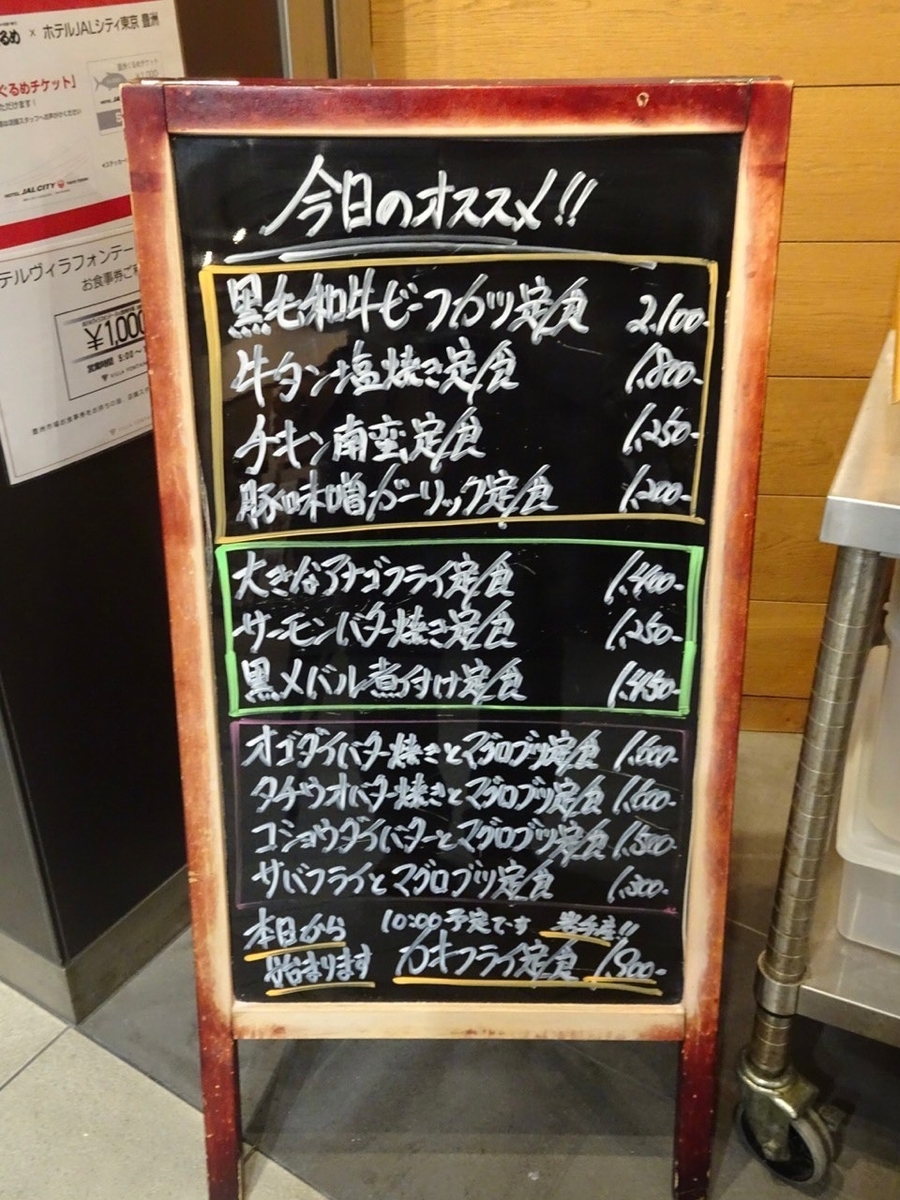 るめ × ホテルJALシティ東京 豊洲
ぐるめチケット」
HOTEL JAL CITY
テルヴィラフォンテー
お食事券ご
¥1,000
今日のオススメ!!
黒毛和牛ビーフカツ定食 2,100-
牛タン塩焼き定食 1,800-
チキン南蛮定食 1,250-
豚味噌ガーリック定食 1,200-
大きなアナゴフライ定食 1,400-
サーモンバター焼き定食 1,250-
黒メバル煮付け定食 1,450-
オゴダイバター焼きとマグロブツ定食 1,600-
タチウオバター焼きとマグロブツ定食 1,600-
コショウダイバターとマグロブツ定食 1,500-
サバフライとマグロブツ定食 1,300-
本日から 10:00予定です 岩手産!!
始まります カキフライ定食 1,800-